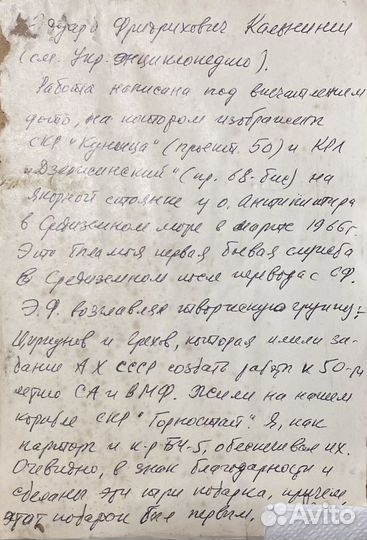 Эдуард Фридрихович Кальнинш
(см. Укр. энциклопедию).
Работа написана под впечатлением
фото, на котором изображены
СКР "Куница" (проект. 50) и КРЛ
"Дзержинский" (пр. 68-бис) на
якорной стоянке у о. Антикитира
в Средиземном море в марте 1966г.
Это была первая боевая служба
в Средиземном после перевода с СФ.
Э.Ф. возглавлял творческую группу:
Циркунов и Грехов, которая имели за-
дание АХ СССР создать работы к 50-ти
летию СА и ВМФ. Жили на нашем
корабле СКР "Горностай". Я, как
парторг и к-р БЧ-5, обеспечивал их.
Очевидно, в знак благодарности и
сделаны эти три подарка, причём
этот подарок был первым.
Avito